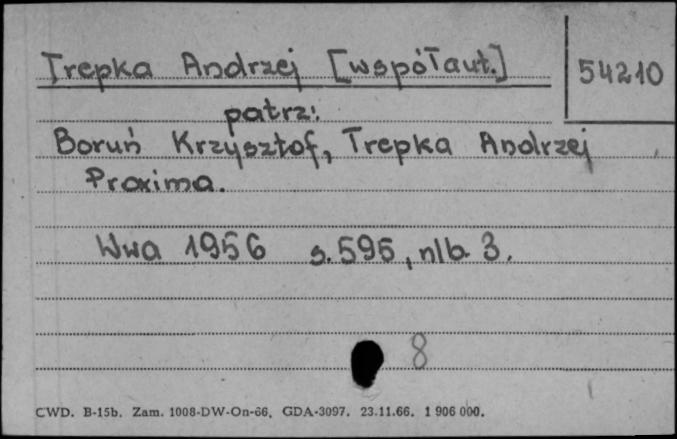 Trepka Andrzej [współaut.] 54210
patrz:
Boruń Krzysztof, Trepka Andrzej
Proxima.
Wwa 1956 s. 595, nlb. 3.
8
CWD. B-15b. Zam. 1008-DW-On-66. GDA-3097. 23.11.66. 1 906 000.